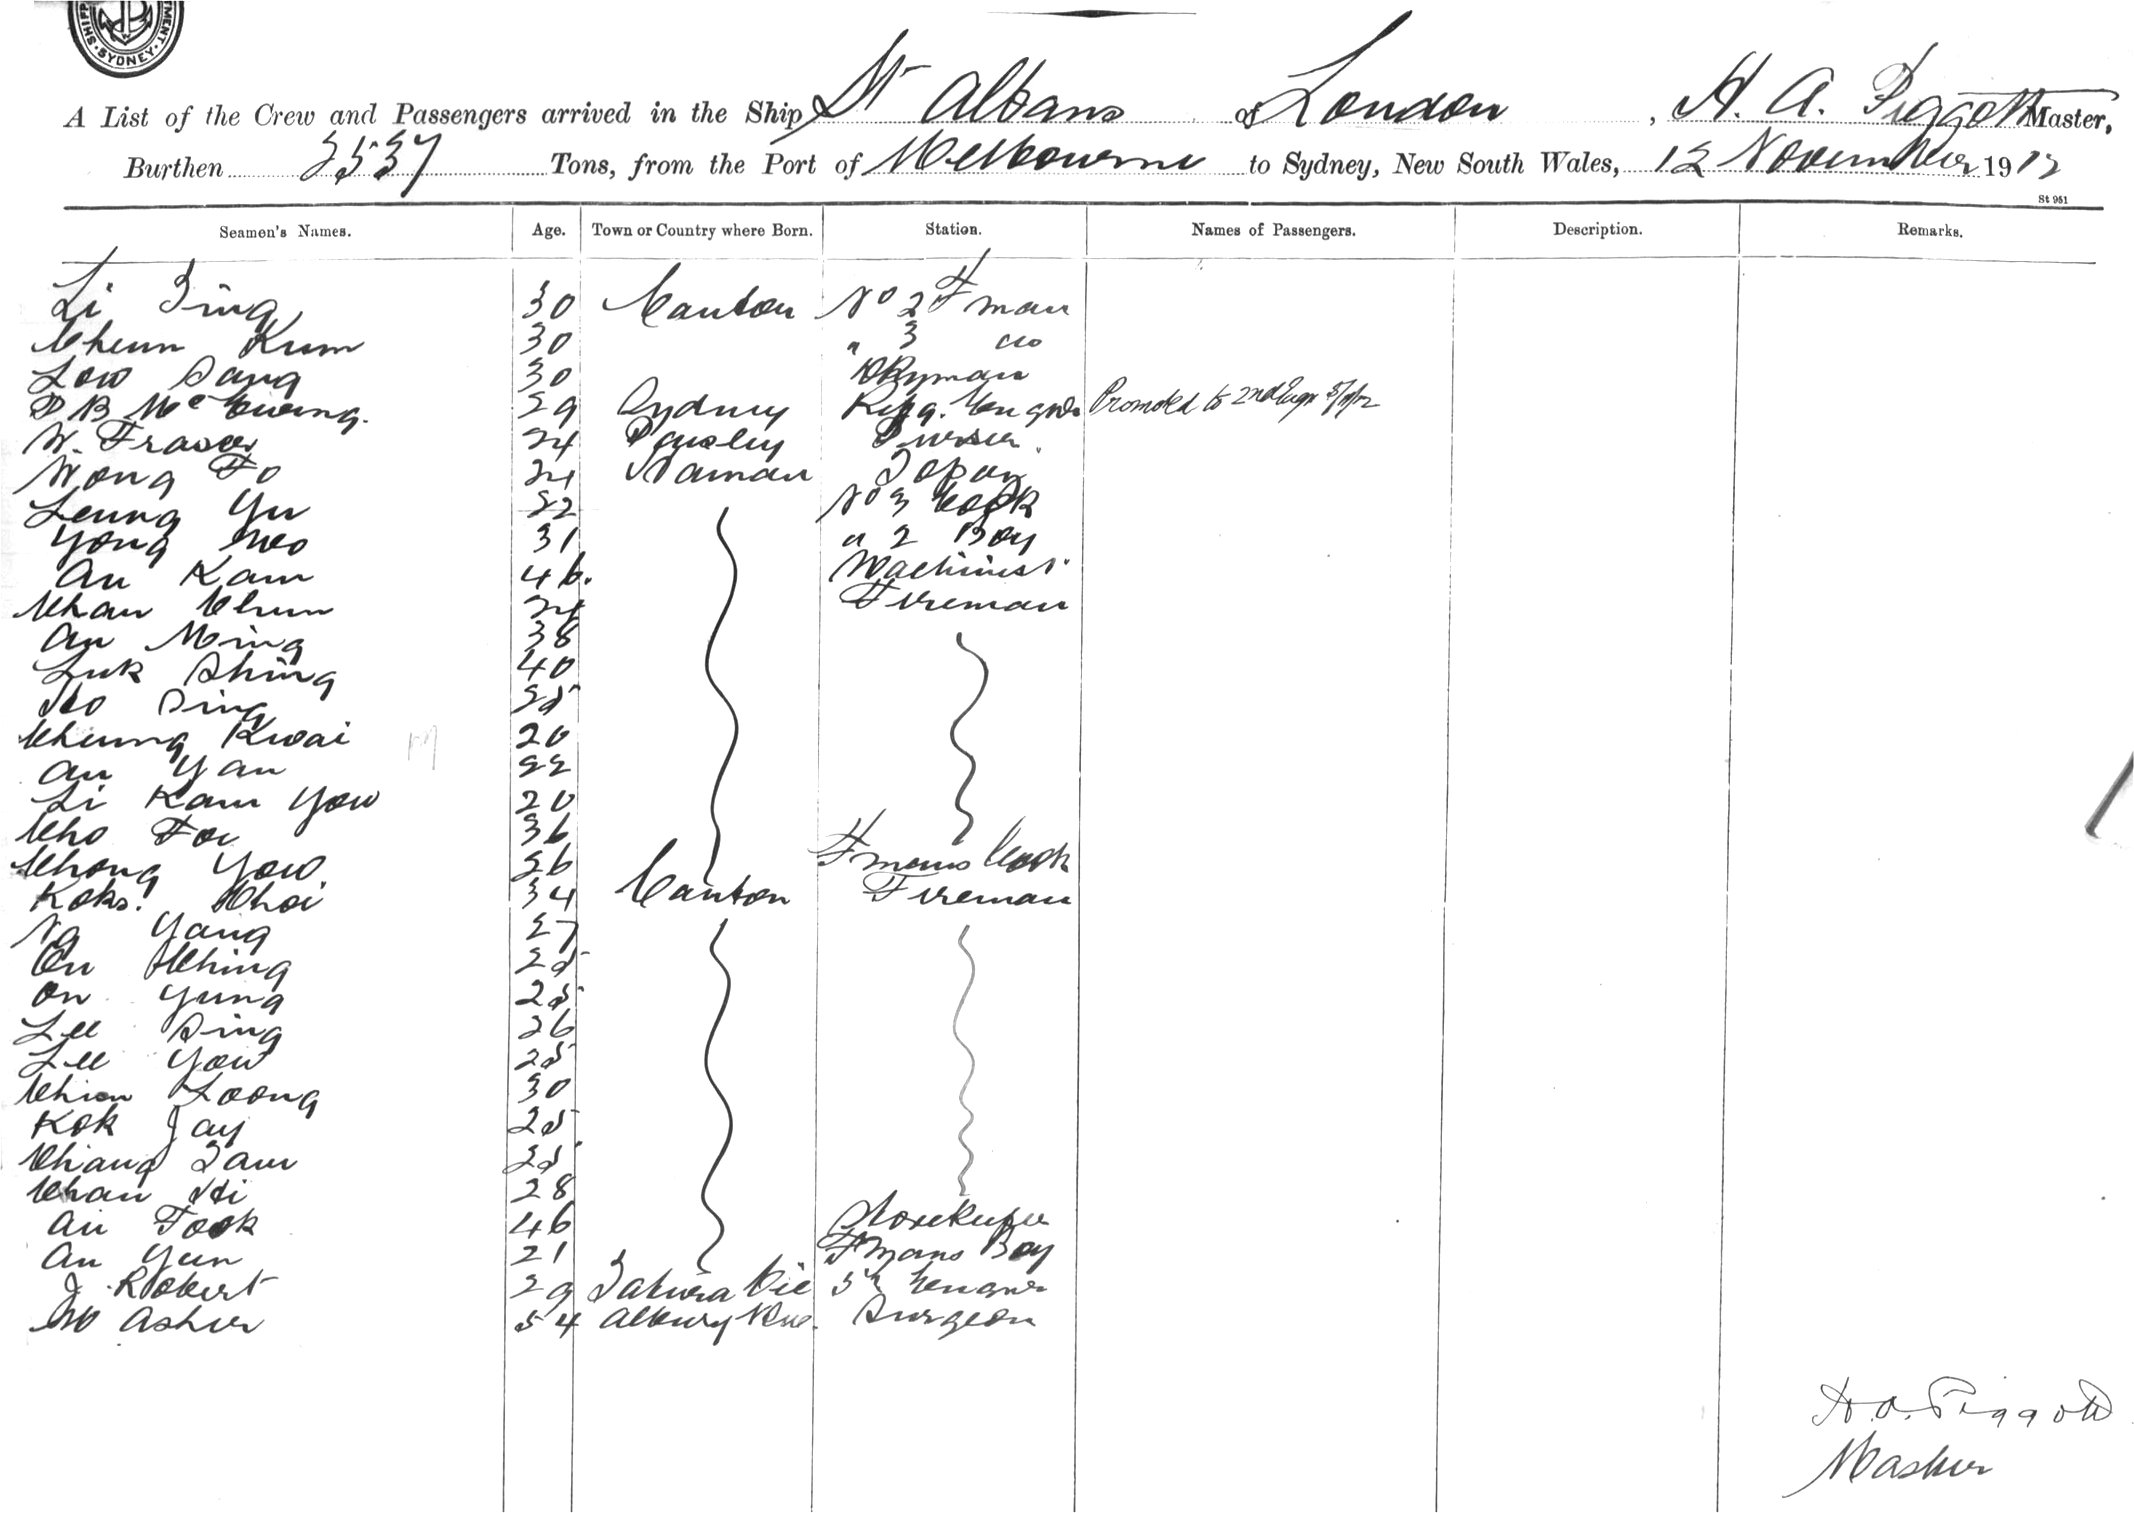 SYDNEY
A List of the Crew and Passengers arrived in the Ship St Albans of London, H. A. Piggott Master,
Burthen 2537 Tons, from the Port of Melbourne to Sydney, New South Wales, 12 November 1912
St 951
Seamen's Names. Age. Town or Country where Born. Station. Names of Passengers. Description. Remarks.
Li Ting 30 Canton No 2 Fman
Cheun Kum 30 " 3 do
Low Sang 30 Dkyman
D B McEwing. 29 Sydney Refg. Engnr Promoted to 2nd Engr
W. Fraser 24 Paisley Purser
Wong Fo 24 Namau
Leung Yu 22 No 3 Cook
Yong 31 " 2 Boy
Au Kam 46. Machinist
Chan Chun 24 Fireman
Au Ming 38
Luk Shing 40
Ho Sing 25
Cheung Kwai 20
Au Yau 22
Li Kam Yow 20
Cho Foi 36
Chong Yow 26 Fmans Cook
Koks. Choi 34 Canton Fireman
Ng Yang 27
On Ching 25
On Yung 25
Lee Sing 26
Lee Yow 25
Chien Loong 30
Kok Jay 25
Chang Tam 25
Chan Hi 28
Au Fook 46 Storekeeper
Au Yun 21 Fmans Boy
J. Robert 29 Vic 5th Engnr
M Asher 54 Albury Surgeon
H. A. Piggott
Master